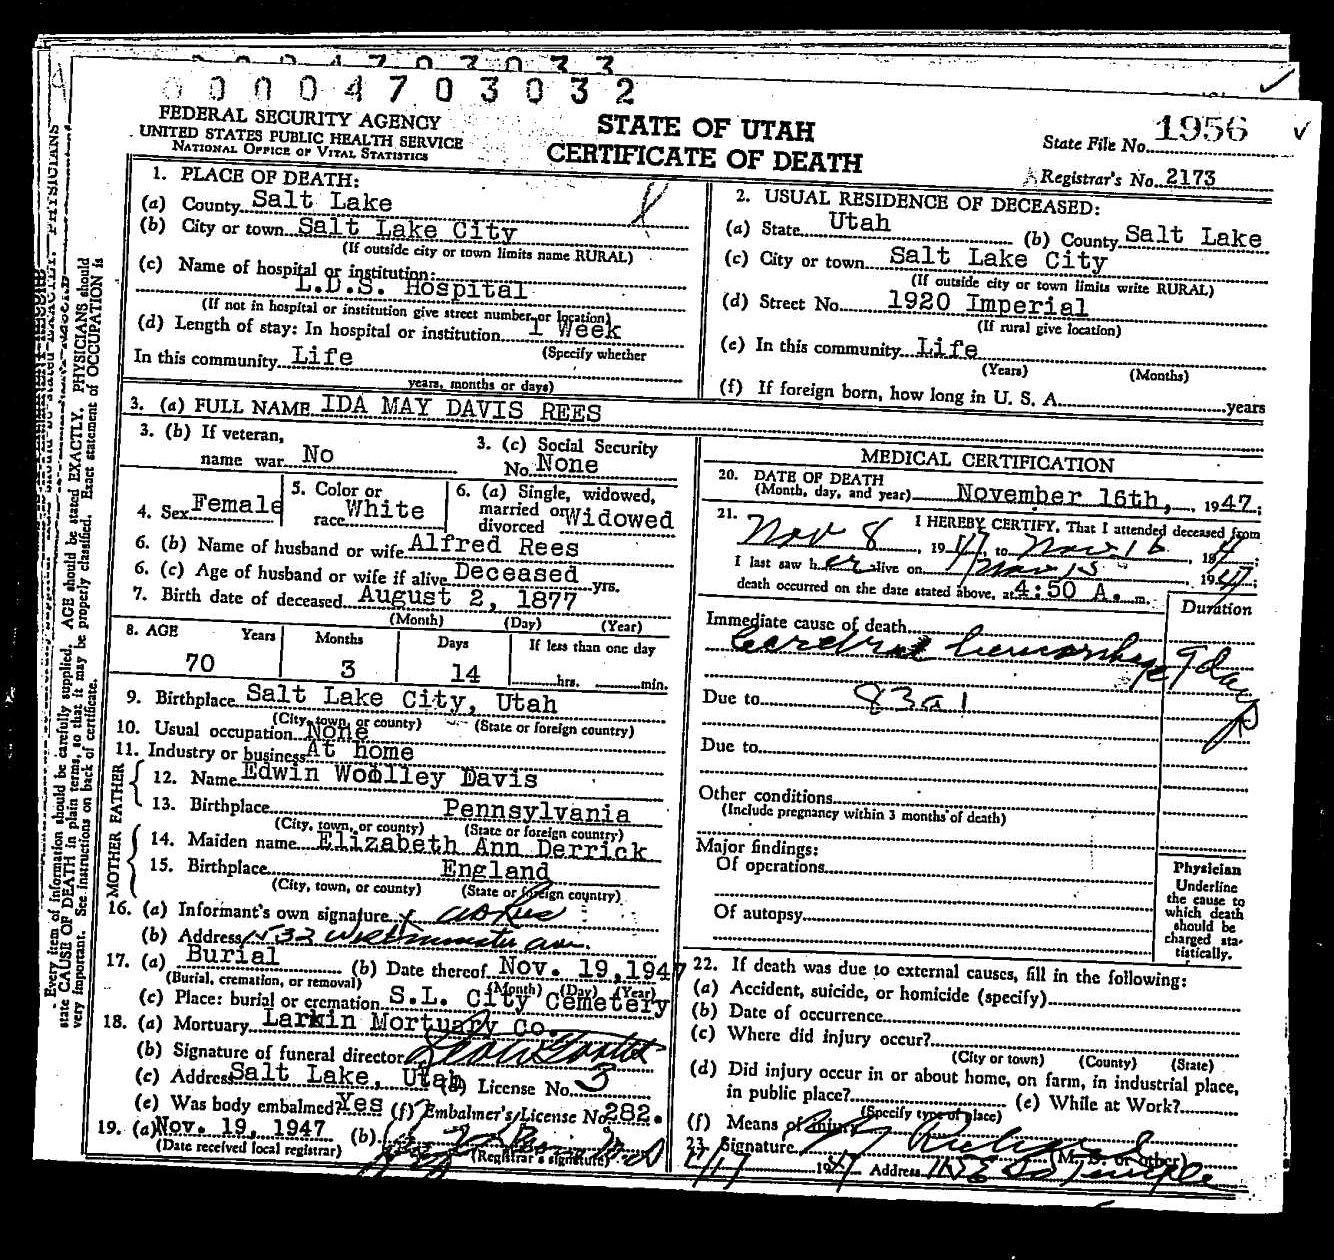 00004703033
00004703032
FEDERAL SECURITY AGENCY
UNITED STATES PUBLIC HEALTH SERVICE
NATIONAL OFFICE OF VITAL STATISTICS
STATE OF UTAH
CERTIFICATE OF DEATH
State File No. 1956
Registrar's No. 2173
1. PLACE OF DEATH:
(a) County Salt Lake
(b) City or town Salt Lake City
(If outside city or town limits name RURAL)
(c) Name of hospital or institution:
L.D.S. Hospital
(If not in hospital or institution give street number or location)
(d) Length of stay: In hospital or institution 1 Week
(Specify whether
In this community Life
years, months or days)
2. USUAL RESIDENCE OF DECEASED:
(a) State Utah (b) County Salt Lake
(c) City or town Salt Lake City
(If outside city or town limits write RURAL)
(d) Street No. 1920 Imperial
(If rural give location)
(e) In this community Life
(Years) (Months)
(f) If foreign born, how long in U. S. A. years
3. (a) FULL NAME IDA MAY DAVIS REES
3. (b) If veteran,
name war No
3. (c) Social Security
No. None
4. Sex Female
5. Color or
race White
6. (a) Single, widowed,
married or
divorced Widowed
6. (b) Name of husband or wife Alfred Rees
6. (c) Age of husband or wife if alive Deceased yrs.
7. Birth date of deceased August 2, 1877
(Month) (Day) (Year)
8. AGE Years Months Days If less than one day
70 3 14 hrs. min.
9. Birthplace Salt Lake City, Utah
(City, town, or county) (State or foreign country)
10. Usual occupation None
11. Industry or business At home
FATHER
12. Name Edwin Woolley Davis
13. Birthplace Pennsylvania
(City, town, or county) (State or foreign country)
MOTHER
14. Maiden name Elizabeth Ann Derrick
15. Birthplace England
(City, town, or county) (State or foreign country)
16. (a) Informant's own signature x
(b) Address 1532 Westminster ave.
17. (a) Burial (b) Date thereof Nov. 19, 1947
(Burial, cremation, or removal) (Month) (Day) (Year)
(c) Place: burial or cremation S.L. City Cemetery
18. (a) Mortuary Larkin Mortuary Co.
(b) Signature of funeral director
(c) Address Salt Lake, Utah (d) License No. 3
(e) Was body embalmed? Yes (f) Embalmer's License No. 282.
19. (a) Nov. 19, 1947 (b)
(Date received local registrar) (Registrar's signature)
MEDICAL CERTIFICATION
20. DATE OF DEATH
(Month, day, and year) November 16th, 1947;
21. I HEREBY CERTIFY, That I attended deceased from
Nov 8, 1947, to Nov 16, 194
I last saw her alive on Nov 15, 1947;
death occurred on the date stated above, at 4:50 A. m.
Duration
Immediate cause of death
Cerebral hemorrhage 9 days
Due to 83a1
Due to
Other conditions
(Include pregnancy within 3 months of death)
Major findings:
Of operations
Of autopsy
Physician
Underline
the cause to
which death
should be
charged sta-
tistically.
22. If death was due to external causes, fill in the following:
(a) Accident, suicide, or homicide (specify)
(b) Date of occurrence
(c) Where did injury occur?
(City or town) (County) (State)
(d) Did injury occur in or about home, on farm, in industrial place,
in public place? (e) While at Work?
(Specify type of place)
(f) Means of injury
23. Signature (M. D. or other)
1947 Address 115 E So Temple
Every item of information should be carefully supplied. AGE should be stated EXACTLY. PHYSICIANS should
state CAUSE OF DEATH in plain terms, so that it may be properly classified. Exact statement of OCCUPATION is
very important. See instructions on back of certificate.